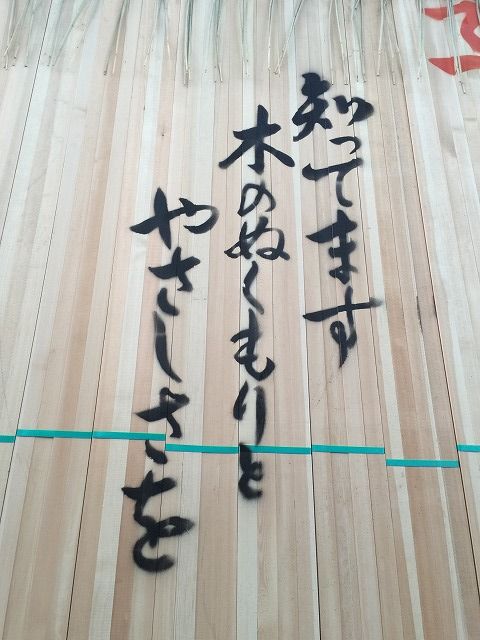 知ってます
木のぬくもりと
やさしさを